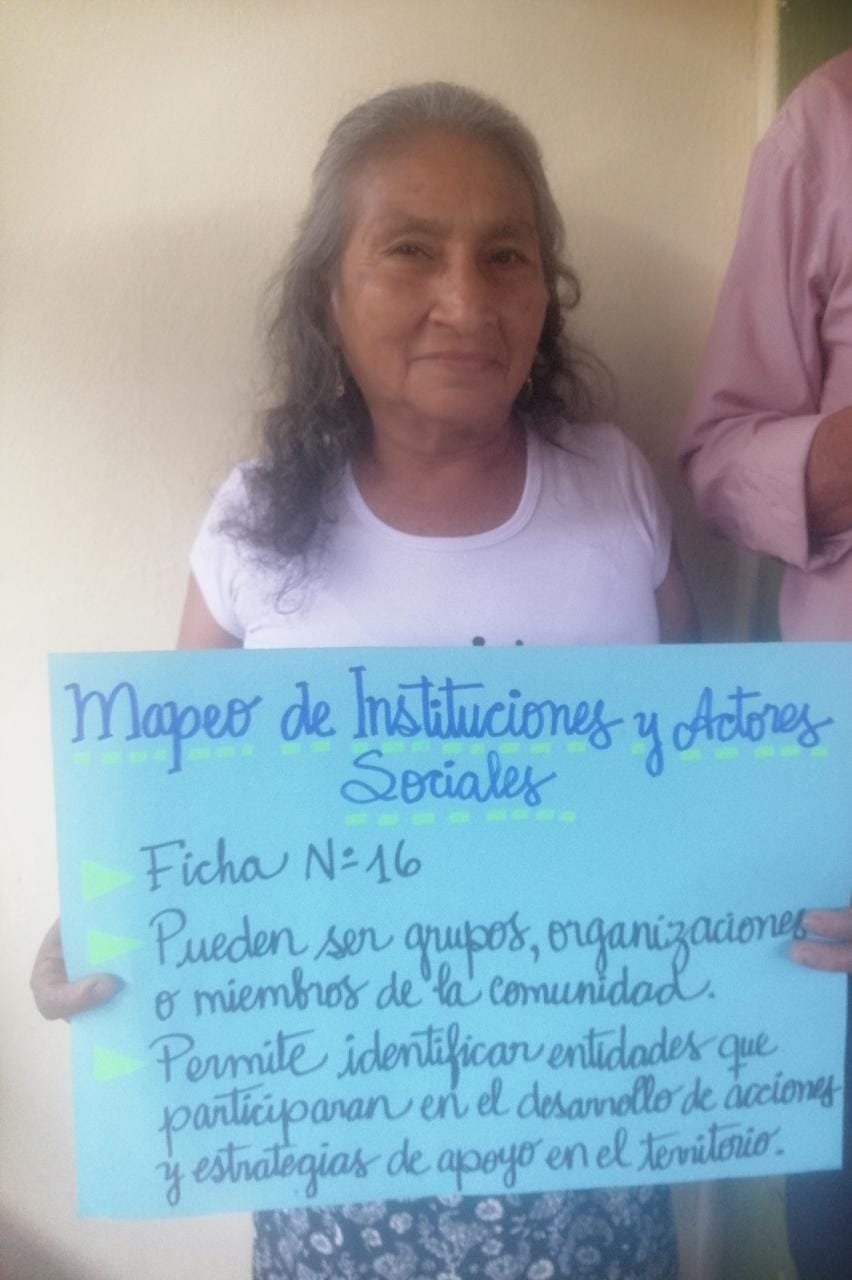 Mapeo de Instituciones y Actores
Sociales
Ficha N° 16
Pueden ser grupos, organizaciones
o miembros de la comunidad.
Permite identificar entidades que
participaran en el desarrollo de acciones
y estrategias de apoyo en el territorio.